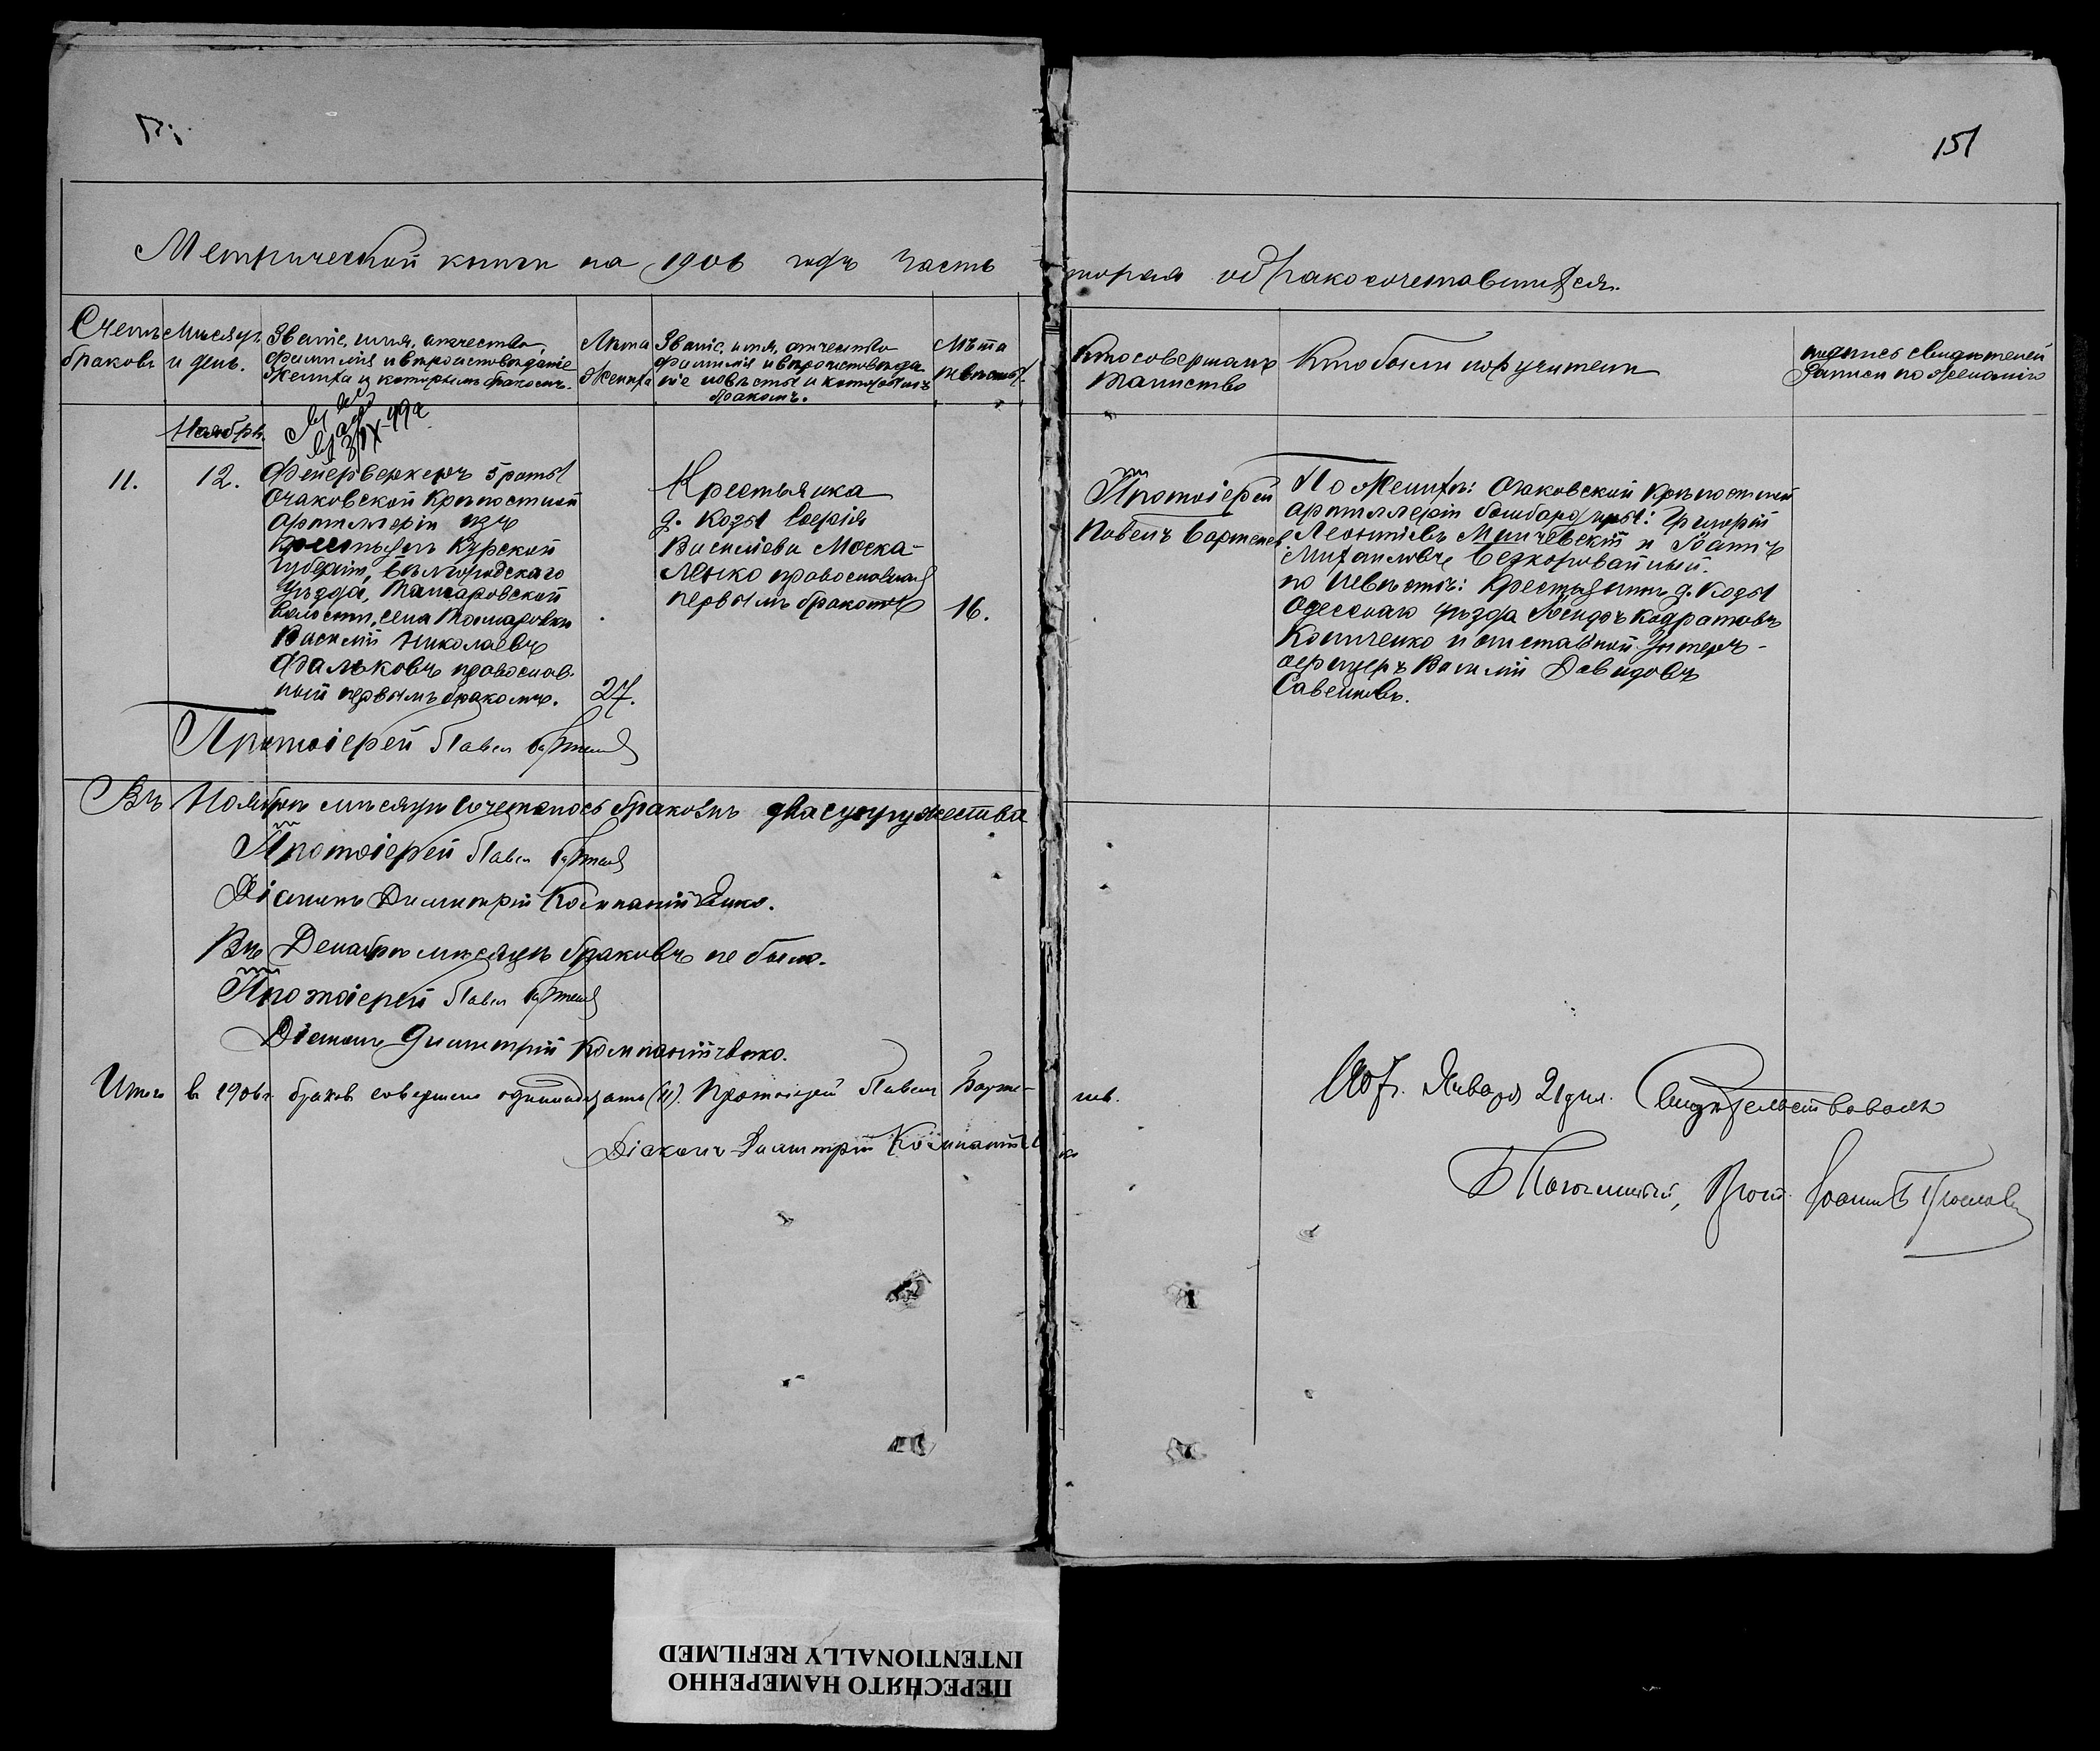 151
Метрической книги на 1906 годъ часть вторая о бракосочетавшихся.
Счетъ браковъ
Мѣсяцъ и день.
Званіе, имя, отчество,
фамилія и вѣроисповѣданіе
жениха и которымъ бракомъ.
Лѣта
жениха
Званіе, имя, отчество
фамилія и вѣроисповѣда
ніе невѣсты и которымъ
бракомъ.
Лѣта
невѣсты.
Кто совершалъ
таинство
Кто были поручители
подпись свидѣтелей
записи по желанію
Ноябрь.
3/IX-49г.
11.
12.
Фейерверкеръ 5 роты
Очаковской Крѣпостной
артиллеріи изъ
крестьянъ Курской
губерніи, Бѣлгородскаго
уѣзда, Томаровской
волости, села Томаровки
Василій Николаевъ
Фальковъ православ-
ный первымъ бракомъ.
27.
Крестьянка
д. Козы
Васильева Моска-
ленко православная
первымъ бракомъ
16.
Протоіерей
Павелъ Бартенев
По Женихѣ: Очаковской Крѣпостной
артиллеріи бомбардиры: Григорій
Леонтіевъ и Іоаннъ
Михаиловъ Безкоровайный.
по Невѣстѣ: Крестьянинъ д. Козы
Одесскаго уѣзда Кодратовъ
и отставной унтеръ-
офицеръ Василій Давидовъ
Савейковъ.
Протоіерей Павел Бартенев
Въ Ноябрѣ мѣсяцѣ сочеталось бракомъ два супружества
Протоіерей Павел Бартенев
Діаконъ Димитрій Компанійченко.
Въ Декабрѣ мѣсяцѣ браковъ не было.
Протоіерей Павел Бартенев
Діаконъ Димитрій Компанійченко.
Итого в 1906 г. браков совершено одиннадцать (11). Протоіерей Павел Барте- нев.
Діаконъ Димитрій Компанійченко
1907 г. Января 21 дня. Свидѣтельствовалъ
Благочинный, Прот. Іоаннъ
ПЕРЕСНЯТО НАМЕРЕННО
INTENTIONALLY REFILMED